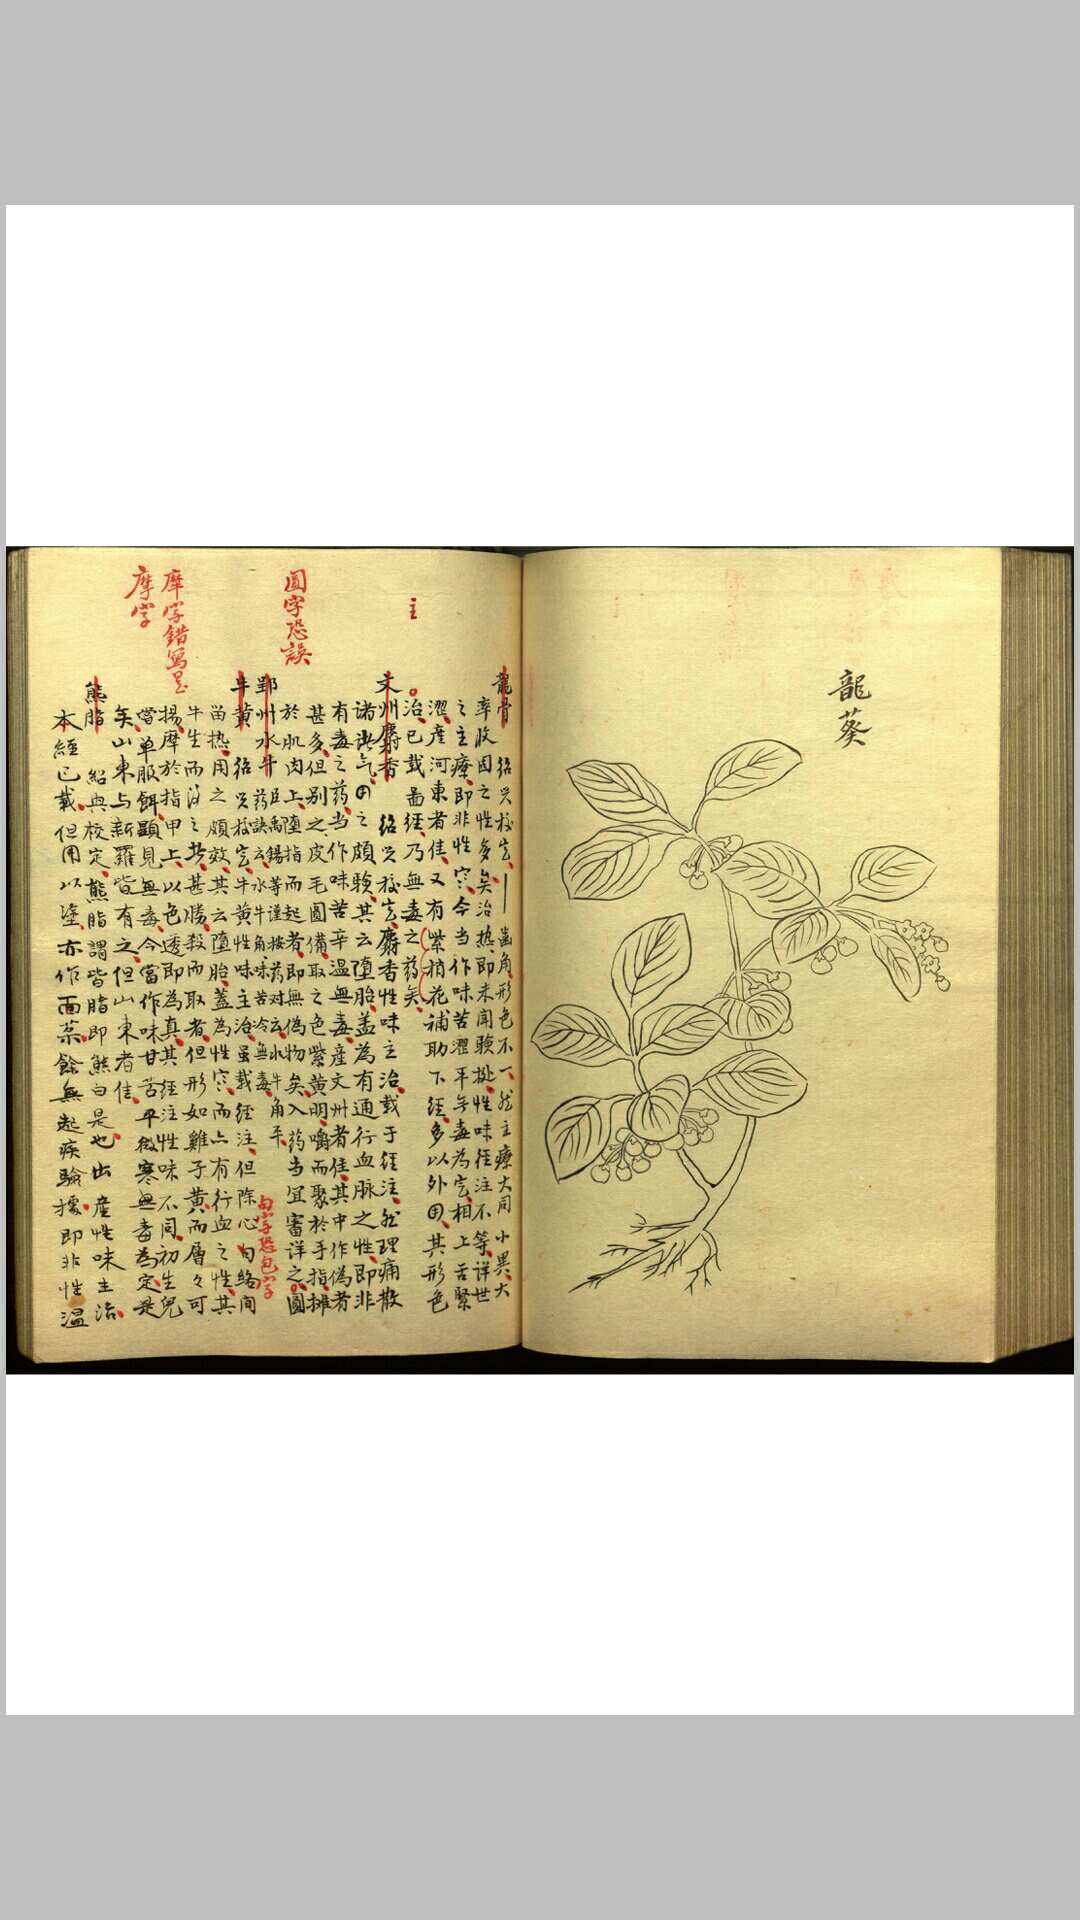 龍葵
主
圓字恐誤
摩字錯寫是
摩字
龍骨 紹兴校定｜齒角形色不一然主療大同小異大
率收固之性多矣治热即未聞験拠性味径注不等詳世
之主療即非性寒今当作味苦濇平無毒為定相上舌緊
濇産河東者佳又有紫梢花補助下経多以外用其形色
治已載畐経乃無毒之药矣
文州麝香 紹兴校定麝香性味主治載于径注然理痛散
诸气用之頗験其云堕胎盖為有通行血脉之性即非
有毒之药当作味苦辛温無毒産文州者佳其中作偽者
甚多但別之皮毛圓備取之色紫黄明嚼而聚於手指摊
於肌肉上堕指而起者即無偽物矣入药当宜審详之圓
郢州水牛 臣禹錫等谨按药对云水牛角平
药訣云水牛角味苦冷無毒
旬字恐包字
牛黄 紹兴校定牛黄性味主治虽載径注但除心旬絡间
留热用之頗效其云堕胎盖為性寒而亠有行血之性其
牛生而浔之者甚勝殺而取者但形如雞子黄而層々可
揚摩於指甲上以色透即為真其经注性味不同初生兒
嘗单服餌顯見無毒今當作味甘苦平微寒無毒為定是
矣山東与新羅皆有之但山東者佳
熊脂 紹興校定熊脂謂皆脂即熊白是也出產性味主治
本經已載但用以塗亦作面藥餘無起疾驗據即非性温